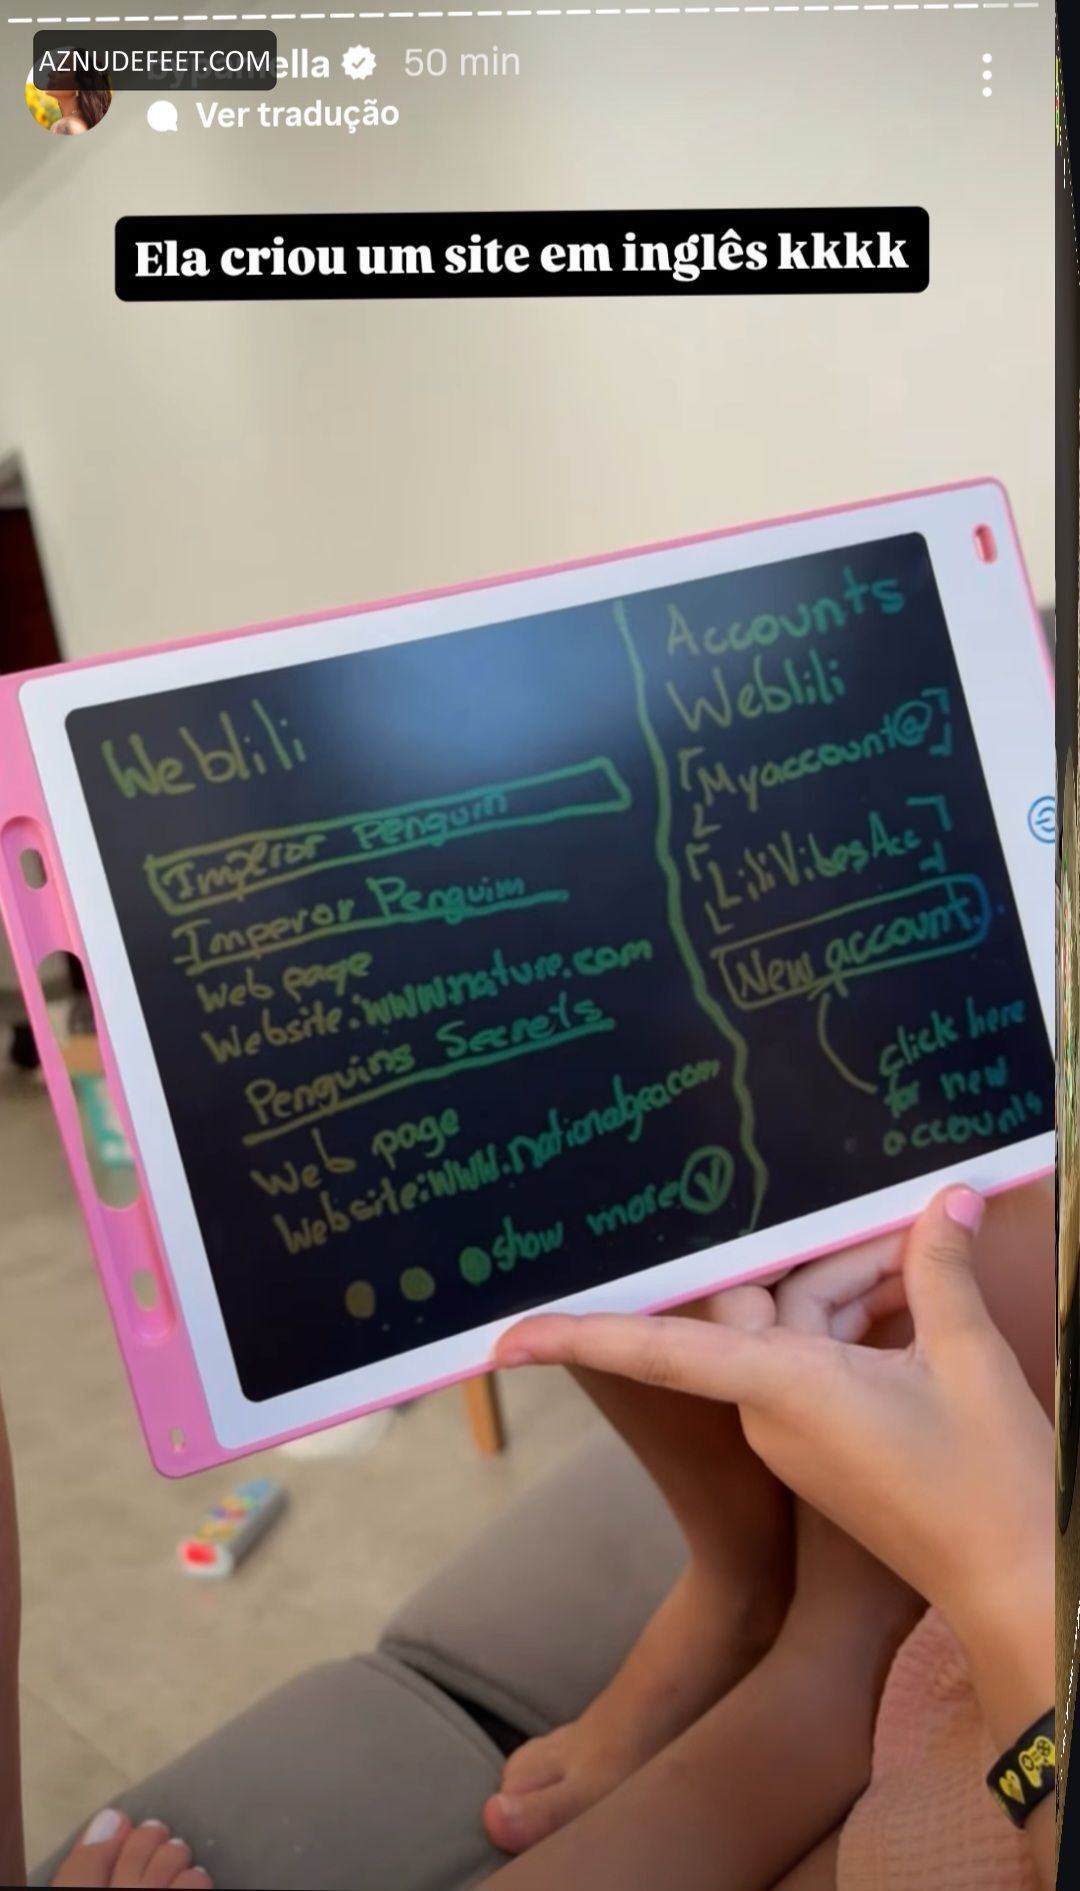 AZNUDEFEET.COM
50 min
Ver tradução
Ela criou um site em inglês kkkk
Weblili
Imperor Penguin
Imperor Penguim
Web page
Website:www.nature.com
Penguins Secrets
Web page
Website:www.nationalgeo.com
show more
Accounts
Weblili
Myaccount@
LiliVibesAcc
New account.
click here
for new
accounts